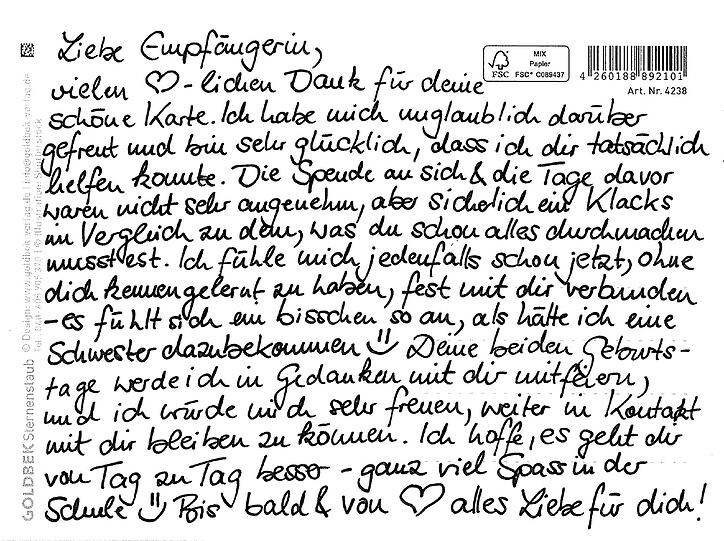 Liebe Empfängerin,
vielen ♡-lichen Dank für deine
schöne Karte. Ich habe mich unglaublich darüber
gefreut und bin sehr glücklich, dass ich dir tatsächlich
helfen konnte. Die Spende an sich & die Tage davor
waren nicht sehr angenehm, aber sicherlich ein Klacks
im Vergleich zu dem, was du schon alles durchmachen
musstest. Ich fühle mich jedenfalls schon jetzt, ohne
dich kennengelernt zu haben, fest mit dir verbunden
- es fühlt sich ein bisschen so an, als hätte ich eine
Schwester dazubekommen :) Deine beiden Geburts-
tage werde ich in Gedanken mit dir mitfeiern,
und ich würde mich sehr freuen, weiter in Kontakt
mit dir bleiben zu können. Ich hoffe, es geht dir
von Tag zu Tag besser - ganz viel Spass in der
Schule :) Bis bald & von ♡ alles Liebe für dich!
MIX
Papier
FSC FSC® C089437
4 260188 892101
Art. Nr. 4238
GOLDBEK Sternenstaub